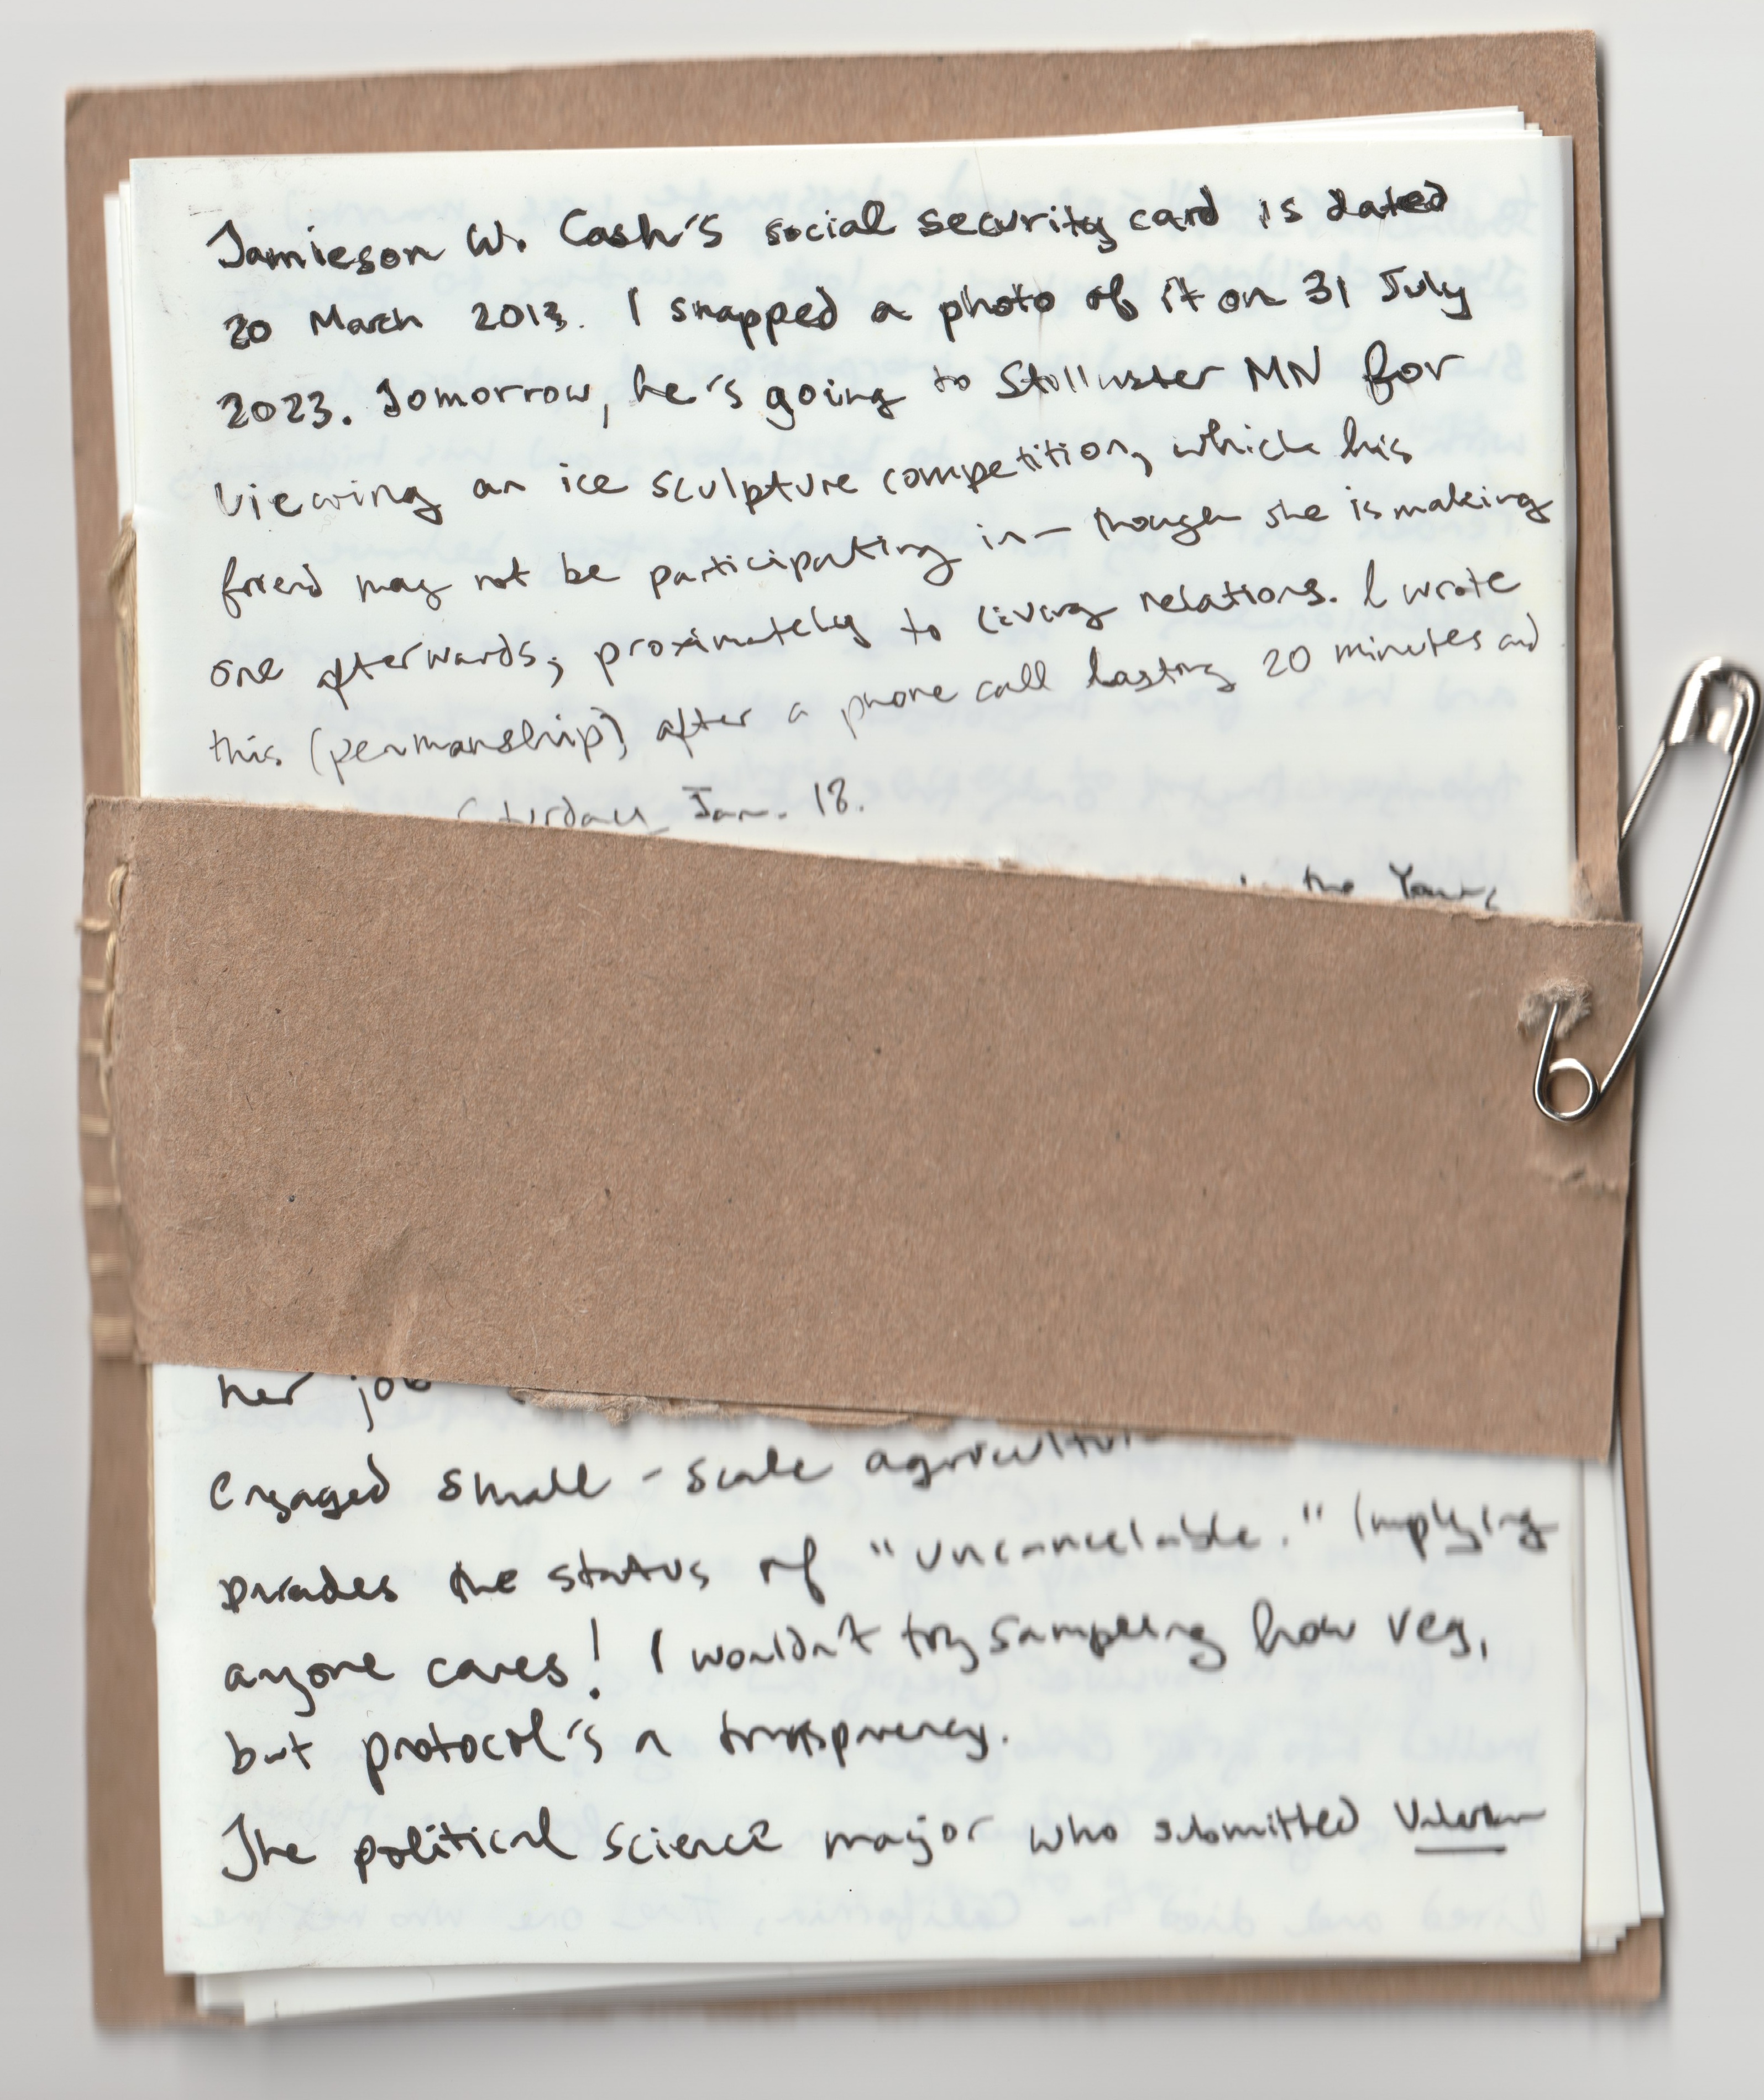 Jamieson W. Cash's social security card is dated
20 March 2013. I snapped a photo of it on 31 July
2023. Tomorrow, he's going to Stillwater MN for
viewing an ice sculpture competition, which his
friend may not be participating in — though she is making
one afterwards, proximately to living relations. I wrote
this (penmanship) after a phone call lasting 20 minutes and
Jan. 18.
the
her job
engaged small-scale
the status of "uncancelable." Implying
anyone cares! I wouldn't try sampling how veg,
but protocol's a
The political science major who submitted